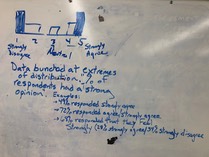 1 2 3 4 5
Strongly Disagree Neutral Strongly Agree
Data bunched at extremes
of distribution. % of
respondents had a strong
opinion. Examples:
responded strongly agree
responded agree/strongly agree
responded that they feel
strongly (29% strongly agree/39% strongly disagree